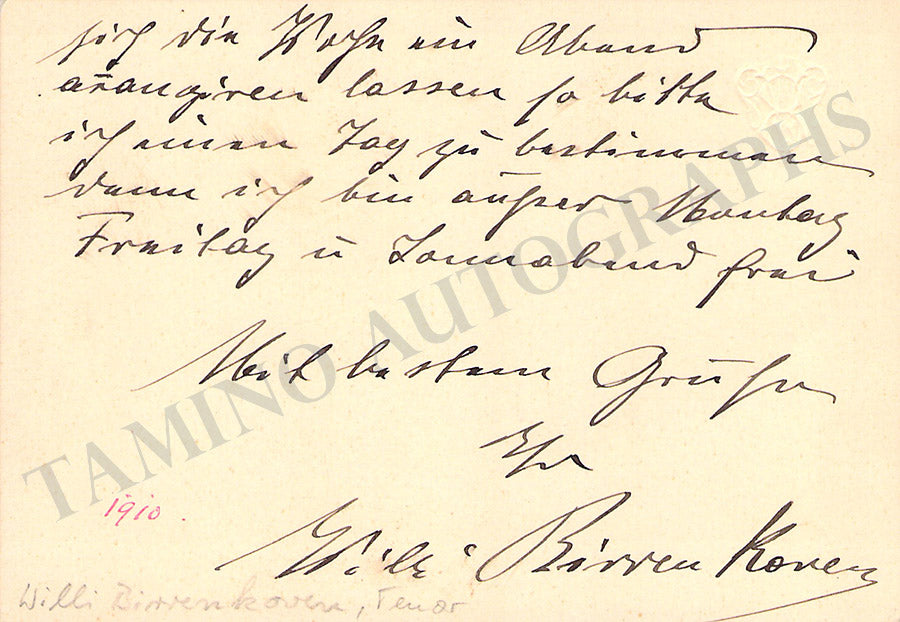 sich die Woche ein Abend
arrangiren lassen so bitte
ich einen Tag zu bestimmen
denn ich bin außer Montag
Freitag u Sonnabend frei
Mit bestem Gruße
Ihr
Willi Birrenkoven
1910
Willi Birrenkoven, Tenor
TAMINO AUTOGRAPHS